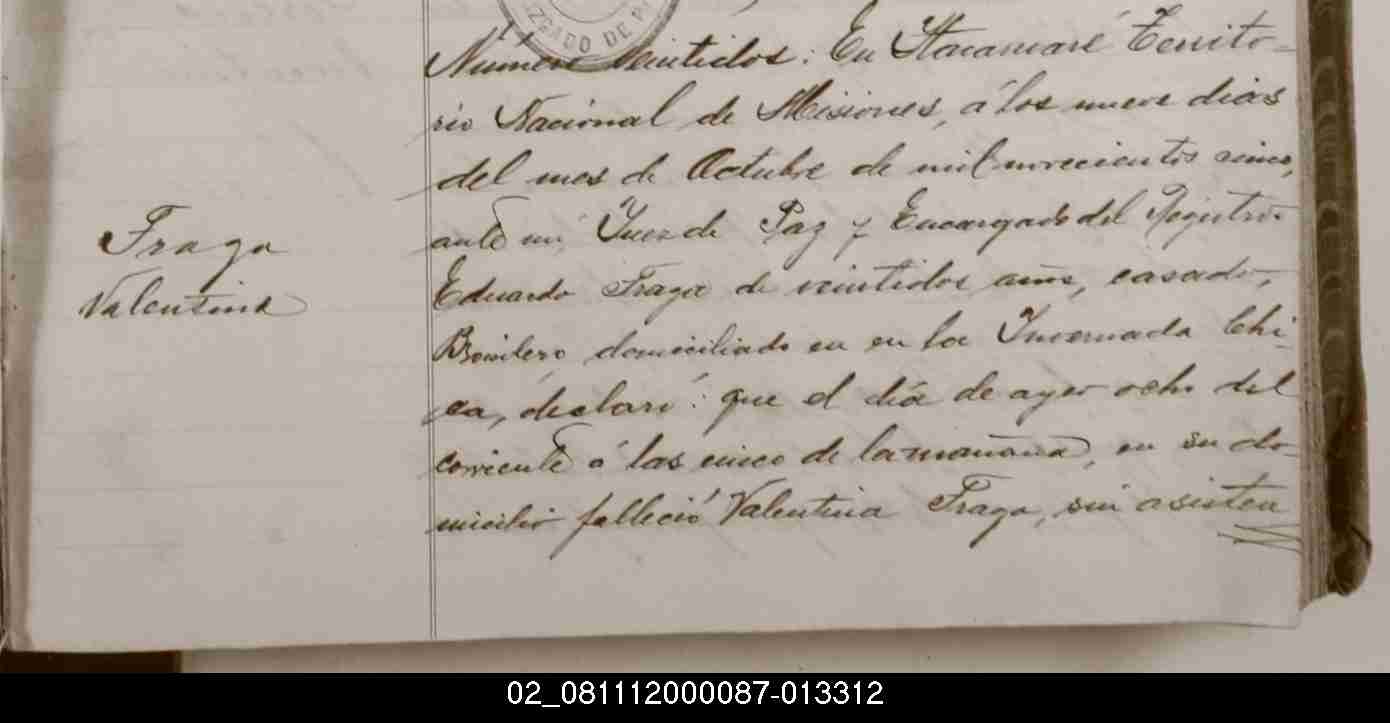 JUZGADO DE P
Número veintidos: En Itacaruaré Territo-
rio Nacional de Misiones, á los nueve dias
del mes de Octubre de mil novecientos cinco,
ante mi, Juez de Paz y Encargado del Registro.
Eduardo Fraga de veintidos años, casado,
Brasilero, domiciliado en en la Invernada Chi-
ca, declaró: que el día de ayer ocho del
corriente á las cinco de la mañana, en su do-
micilio falleció Valentina Fraga, sin asisten
Fraga
Valentina
02_081112000087-013312